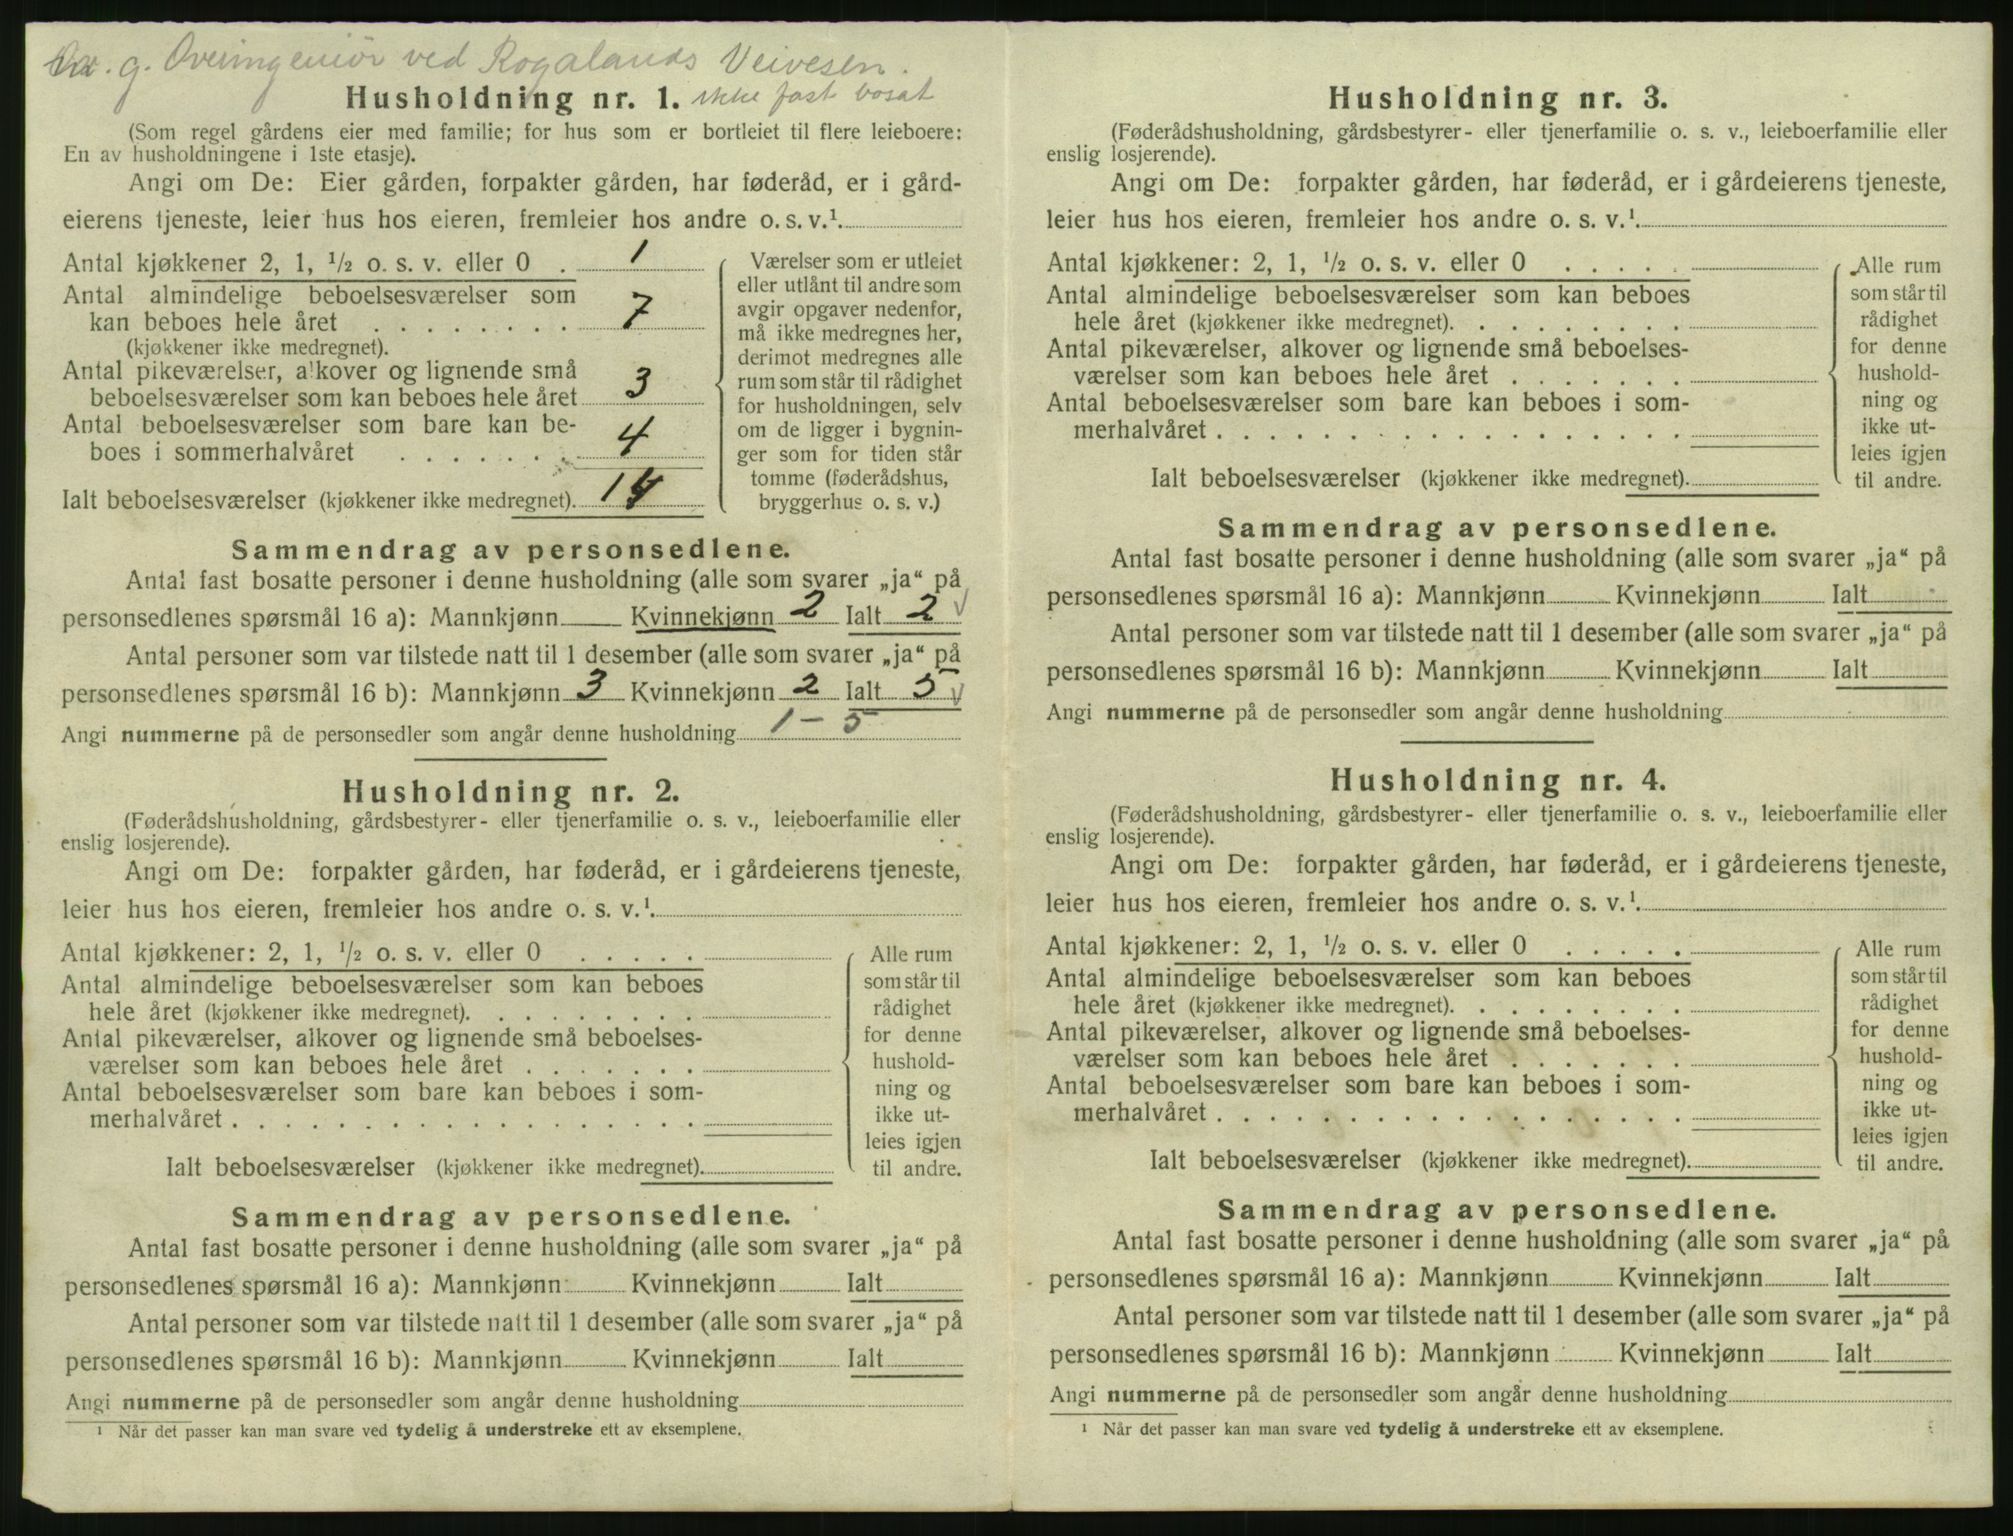 g. Overingeniör ved Rogalands Veivesen.
Husholdning nr. 1. ikke fast bosat
(Som regel gårdens eier med familie; for hus som er bortleiet til flere leieboere:
En av husholdningene i 1ste etasje).
Angi om De: Eier gården, forpakter gården, har føderåd, er i gård-
eierens tjeneste, leier hus hos eieren, fremleier hos andre o. s. v.¹
Antal kjøkkener 2, 1, ½ o. s. v. eller 0 . 1
Antal almindelige beboelsesværelser som
kan beboes hele året . . . . . . . . 7
(kjøkkener ikke medregnet).
Antal pikeværelser, alkover og lignende små
beboelsesværelser som kan beboes hele året 3
Antal beboelsesværelser som bare kan be-
boes i sommerhalvåret . . . . . . . 4
Ialt beboelsesværelser (kjøkkener ikke medregnet). 14
Værelser som er utleiet
eller utlånt til andre som
avgir opgaver nedenfor,
må ikke medregnes her,
derimot medregnes alle
rum som står til rådighet
for husholdningen, selv
om de ligger i bygnin-
ger som for tiden står
tomme (føderådshus,
bryggerhus o. s. v.)
Sammendrag av personsedlene.
Antal fast bosatte personer i denne husholdning (alle som svarer „ja“ på
personsedlenes spørsmål 16 a): Mannkjønn — Kvinnekjønn 2 Ialt 2 √
Antal personer som var tilstede natt til 1 desember (alle som svarer „ja“ på
personsedlenes spørsmål 16 b): Mannkjønn 3 Kvinnekjønn 2 Ialt 5 √
Angi nummerne på de personsedler som angår denne husholdning 1 - 5
Husholdning nr. 2.
(Føderådshusholdning, gårdsbestyrer- eller tjenerfamilie o. s. v., leieboerfamilie eller
enslig losjerende).
Angi om De: forpakter gården, har føderåd, er i gårdeierens tjeneste,
leier hus hos eieren, fremleier hos andre o. s. v.¹
Antal kjøkkener: 2, 1, ½ o. s. v. eller 0 . . . . .
Antal almindelige beboelsesværelser som kan beboes
hele året (kjøkkener ikke medregnet). . . . . . . . .
Antal pikeværelser, alkover og lignende små beboelses-
værelser som kan beboes hele året . . . . . . .
Antal beboelsesværelser som bare kan beboes i som-
merhalvåret . . . . . . . . . . . . . . . . . .
Ialt beboelsesværelser (kjøkkener ikke medregnet).
Alle rum
som står til
rådighet
for denne
hushold-
ning og
ikke ut-
leies igjen
til andre.
Sammendrag av personsedlene.
Antal fast bosatte personer i denne husholdning (alle som svarer „ja“ på
personsedlenes spørsmål 16 a): Mannkjønn Kvinnekjønn Ialt
Antal personer som var tilstede natt til 1 desember (alle som svarer „ja“ på
personsedlenes spørsmål 16 b): Mannkjønn Kvinnekjønn Ialt
Angi nummerne på de personsedler som angår denne husholdning
¹ Når det passer kan man svare ved tydelig å understreke ett av eksemplene.
Husholdning nr. 3.
(Føderådshusholdning, gårdsbestyrer- eller tjenerfamilie o. s. v., leieboerfamilie eller
enslig losjerende).
Angi om De: forpakter gården, har føderåd, er i gårdeierens tjeneste,
leier hus hos eieren, fremleier hos andre o. s. v.¹
Antal kjøkkener: 2, 1, ½ o. s. v. eller 0 . . . . .
Antal almindelige beboelsesværelser som kan beboes
hele året (kjøkkener ikke medregnet). . . . . . . . .
Antal pikeværelser, alkover og lignende små beboelses-
værelser som kan beboes hele året . . . . . . .
Antal beboelsesværelser som bare kan beboes i som-
merhalvåret . . . . . . . . . . . . . . . . . .
Ialt beboelsesværelser (kjøkkener ikke medregnet).
Alle rum
som står til
rådighet
for denne
hushold-
ning og
ikke ut-
leies igjen
til andre.
Sammendrag av personsedlene.
Antal fast bosatte personer i denne husholdning (alle som svarer „ja“ på
personsedlenes spørsmål 16 a): Mannkjønn Kvinnekjønn Ialt
Antal personer som var tilstede natt til 1 desember (alle som svarer „ja“ på
personsedlenes spørsmål 16 b): Mannkjønn Kvinnekjønn Ialt
Angi nummerne på de personsedler som angår denne husholdning
Husholdning nr. 4.
(Føderådshusholdning, gårdsbestyrer- eller tjenerfamilie o. s. v., leieboerfamilie eller
enslig losjerende).
Angi om De: forpakter gården, har føderåd, er i gårdeierens tjeneste,
leier hus hos eieren, fremleier hos andre o. s. v.¹
Antal kjøkkener: 2, 1, ½ o. s. v. eller 0 . . . . .
Antal almindelige beboelsesværelser som kan beboes
hele året (kjøkkener ikke medregnet). . . . . . . . .
Antal pikeværelser, alkover og lignende små beboelses-
værelser som kan beboes hele året . . . . . . .
Antal beboelsesværelser som bare kan beboes i som-
merhalvåret . . . . . . . . . . . . . . . . . .
Ialt beboelsesværelser (kjøkkener ikke medregnet).
Alle rum
som står til
rådighet
for denne
hushold-
ning og
ikke ut-
leies igjen
til andre.
Sammendrag av personsedlene.
Antal fast bosatte personer i denne husholdning (alle som svarer „ja“ på
personsedlenes spørsmål 16 a): Mannkjønn Kvinnekjønn Ialt
Antal personer som var tilstede natt til 1 desember (alle som svarer „ja“ på
personsedlenes spørsmål 16 b): Mannkjønn Kvinnekjønn Ialt
Angi nummerne på de personsedler som angår denne husholdning
¹ Når det passer kan man svare ved tydelig å understreke ett av eksemplene.